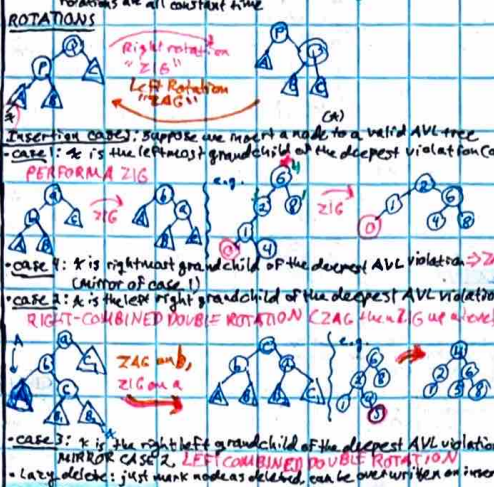 rotations are all constant time
ROTATIONS
Right rotation
"ZIG"
Left Rotation
"ZAG"
Insertion cases: suppose we insert a node to a valid AVL tree
• case 1: x is the leftmost grandchild of the deepest violation
PERFORM A ZIG
e.g.
ZIG
ZIG
• case 4: x is rightmost grandchild of the deepest AVL violation ⇒
(mirror of case 1)
• case 2: x is the left right grandchild of the deepest AVL violation
RIGHT-COMBINED DOUBLE ROTATION (ZAG then ZIG up a level
ZAG on b,
ZIG on a
e.g.
• case 3: x is the right left grandchild of the deepest AVL violation
MIRROR CASE 2, LEFT COMBINED DOUBLE ROTATION
• Lazy delete: just mark node as deleted, can be overwritten on inser